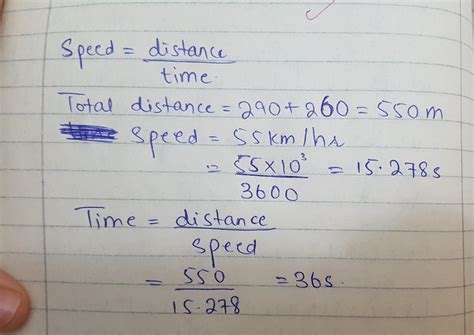 Speed = distance
time
Total distance = 290 + 260 = 550 m
Speed = 55 km/hr
= 55 × 10³ = 15.278s
3600
Time = distance
speed
= 550 = 36s.
15.278